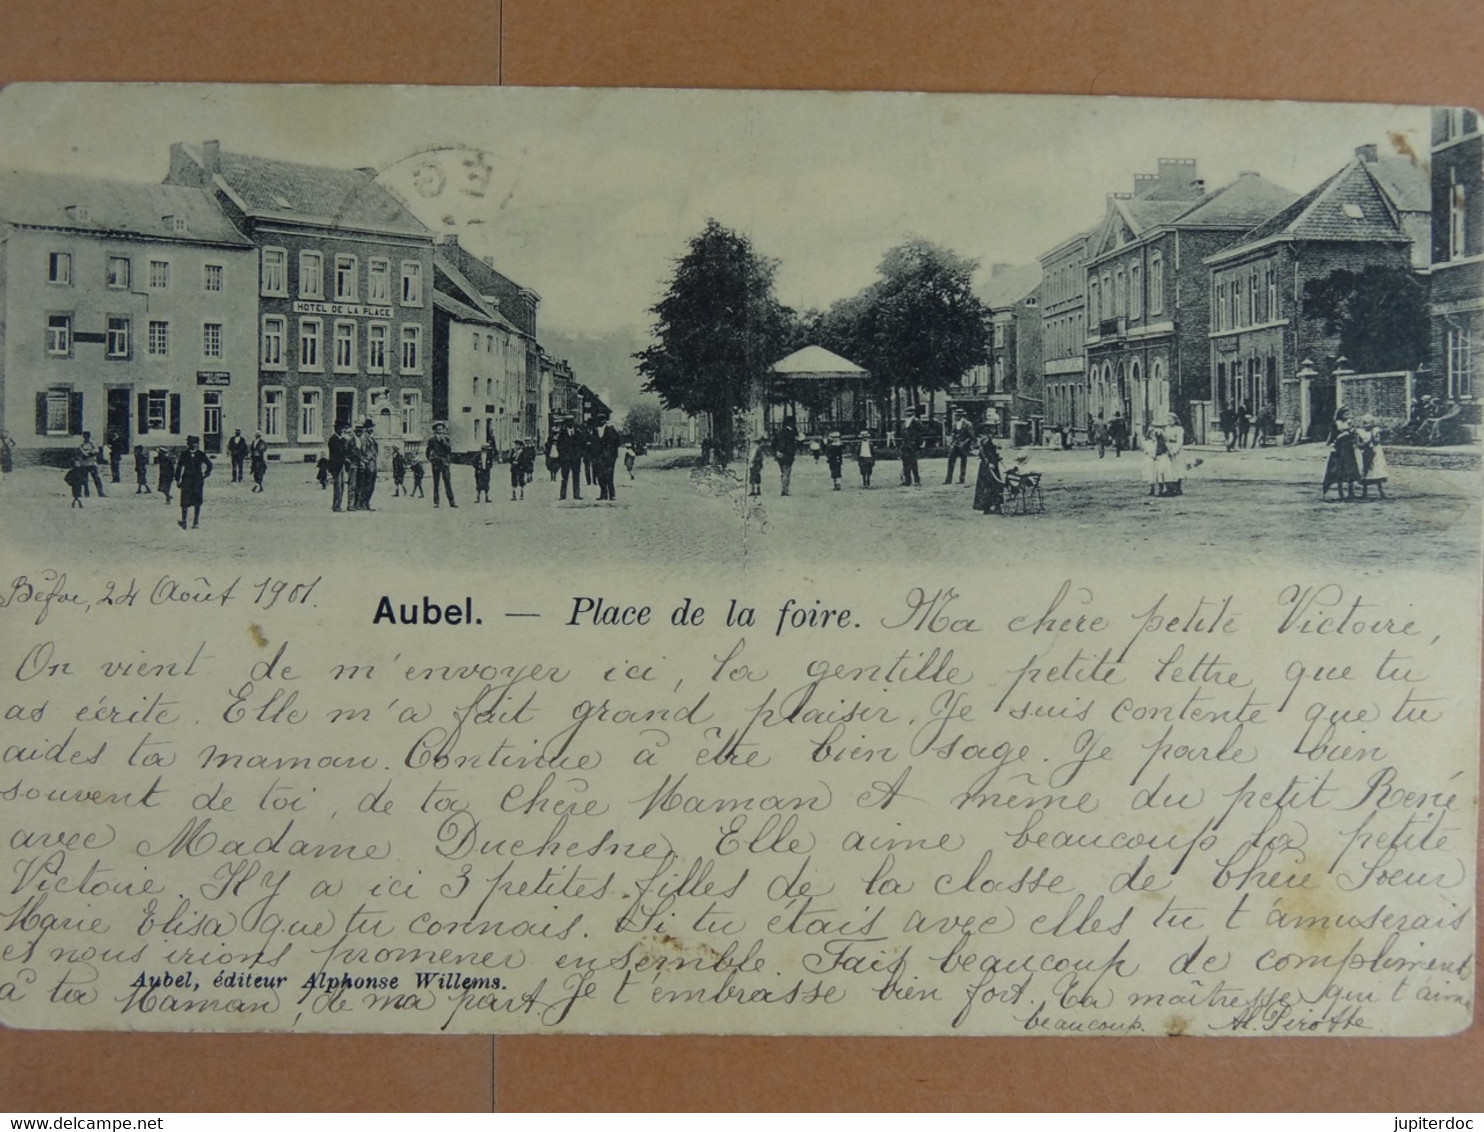 HOTEL DE LA PLACE
24 Août 1901.
Aubel. — Place de la foire.
Ma chère petite Victoire,
On vient de m'envoyer ici, la gentille petite lettre que tu
as écrite. Elle m'a fait grand plaisir. Je suis contente que tu
aides ta maman. Continue à être bien sage. Je parle bien
souvent de toi, de ta Chère Maman et même du petit René
avec Madame Duchesne. Elle aime beaucoup la petite
Victoire. Il y a ici 3 petites filles de la classe de Chère Soeur
Marie Elisa que tu connais. Si tu étais avec elles tu t'amuserais
et nous irions promener ensemble. Fais beaucoup de compliment,
à ta Maman, de ma part. Je t'embrasse bien fort. Ta maîtresse qui t'aime
beaucoup. M. Pirotte
Aubel, éditeur Alphonse Willems.
delcampe.net
jupiterdoc